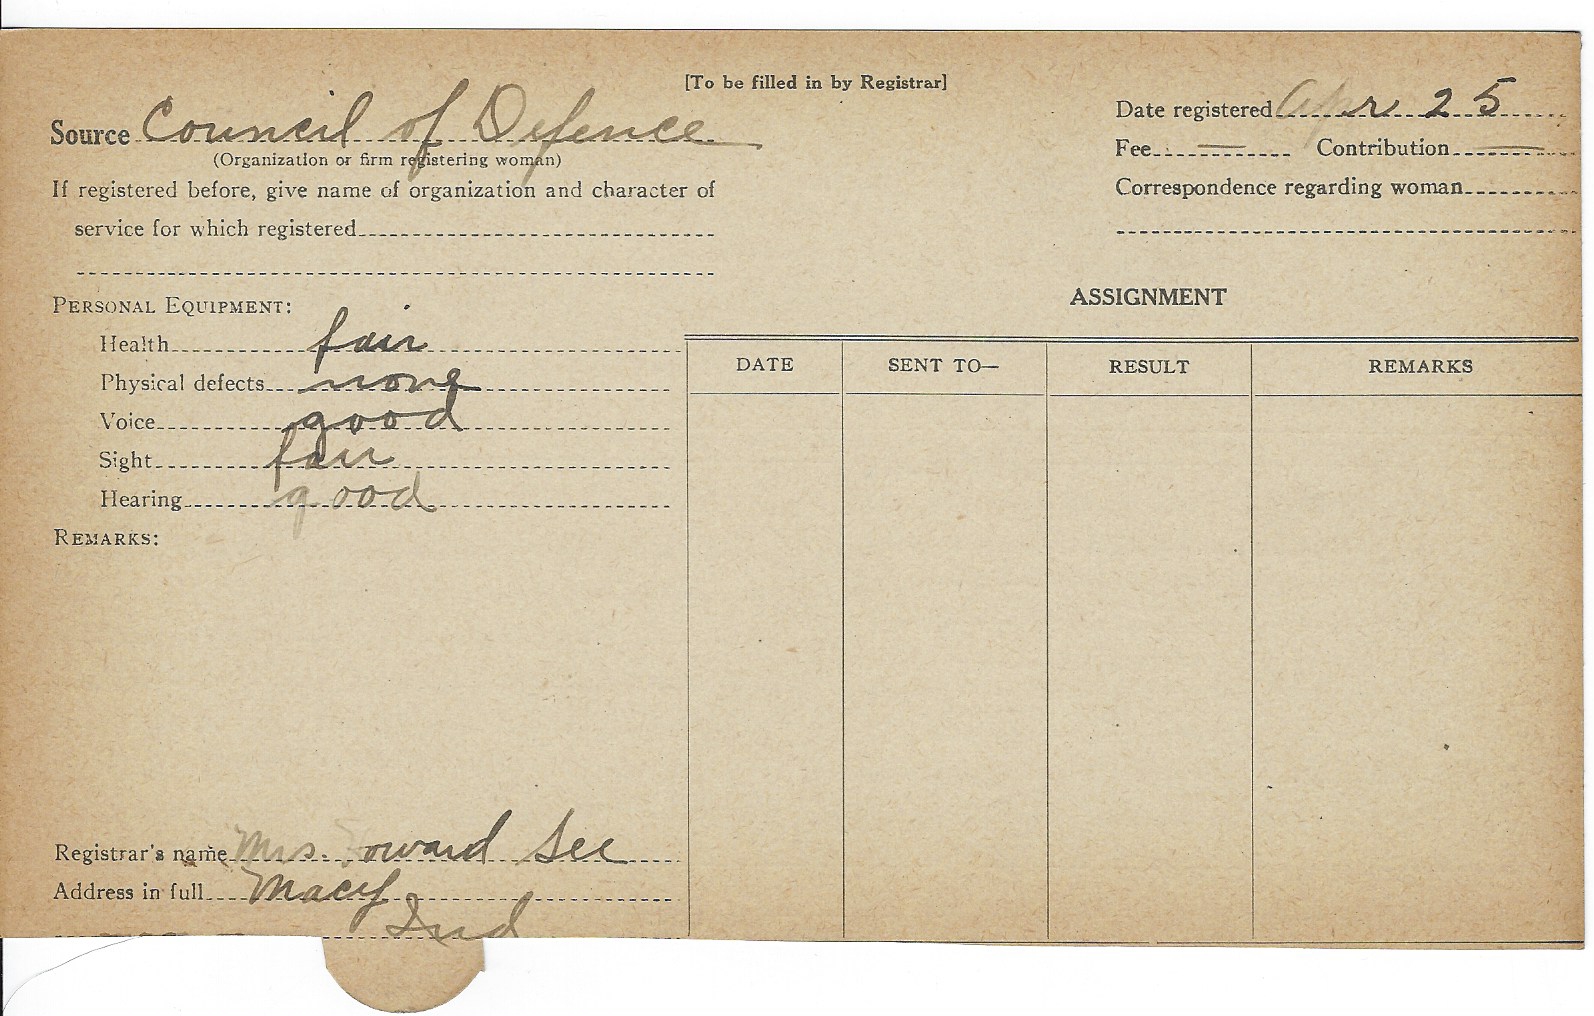 [To be filled in by Registrar]
Source Council of Defence
(Organization or firm registering woman)
If registered before, give name of organization and character of
service for which registered
Date registered Apr 25
Fee — Contribution —
Correspondence regarding woman
PERSONAL EQUIPMENT:
Health fair
Physical defects none
Voice good
Sight fair
Hearing good
REMARKS:
Registrar's name Mrs. Howard See
Address in full Macy
Ind
ASSIGNMENT
DATE SENT TO— RESULT REMARKS